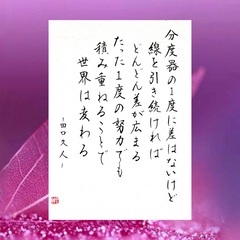 分度器の1度に差はないけど
線を引き続ければ
どんどん差が広まる
たった1度の努力でも
積み重ねることで
世界は変わる
-田口久人-